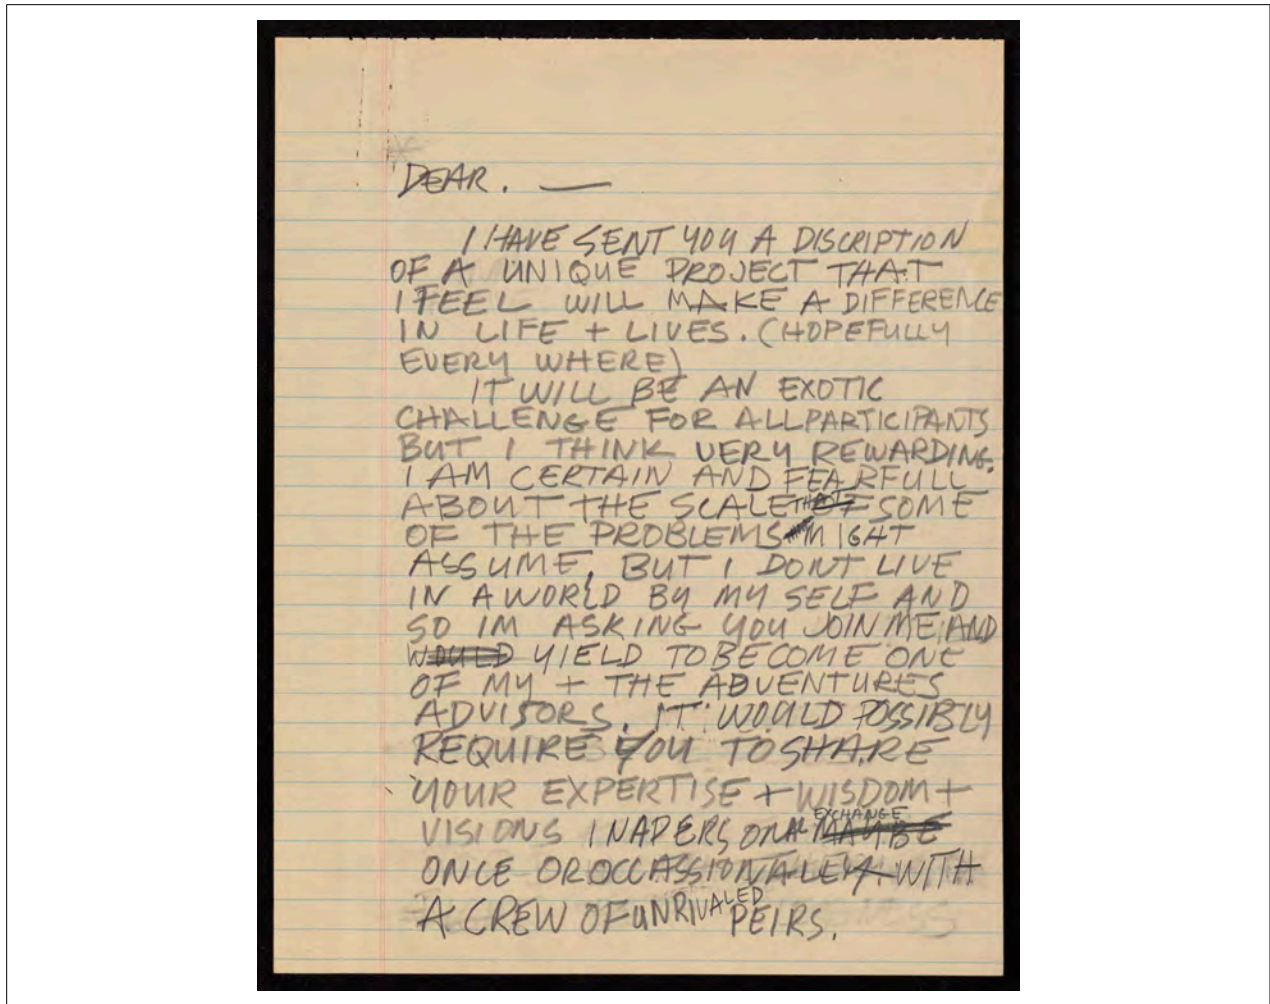 DEAR. —
I HAVE SENT YOU A DISCRIPTION
OF A UNIQUE PROJECT THAT
I FEEL WILL MAKE A DIFFERENCE
IN LIFE + LIVES. (HOPEFULLY
EVERY WHERE)
IT WILL BE AN EXOTIC
CHALLENGE FOR ALL PARTICIPANTS
BUT I THINK VERY REWARDING.
I AM CERTAIN AND FEARFULL
ABOUT THE SCALE THAT SOME
OF THE PROBLEMS MIGHT
ASSUME, BUT I DONT LIVE
IN A WORLD BY MY SELF AND
SO IM ASKING YOU JOIN ME AND
WOULD YIELD TO BECOME ONE
OF MY + THE ADVENTURES
ADVISORS. IT WOULD POSSIBLY
REQUIRE YOU TO SHARE
YOUR EXPERTISE + WISDOM +
VISIONS IN A PERSONAL EXCHANGE
ONCE OR OCCASSIONALEY WITH
A CREW OF UNRIVALED PEIRS.